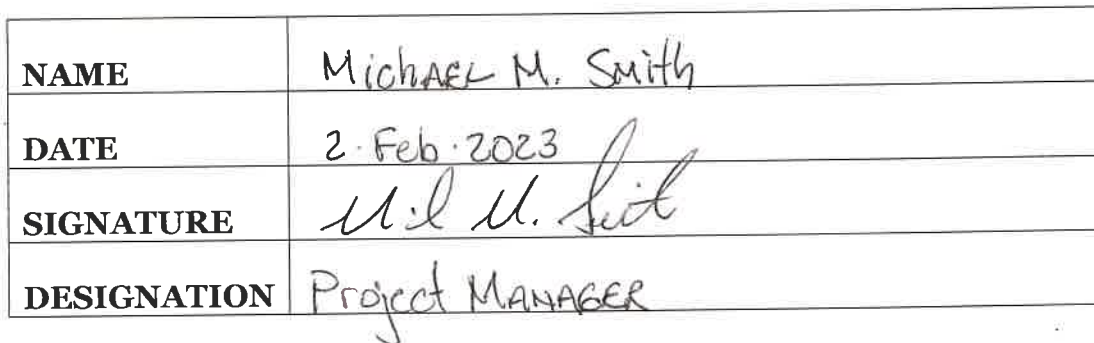 NAME Michael M. Smith
DATE 2. Feb. 2023
SIGNATURE
DESIGNATION Project Manager